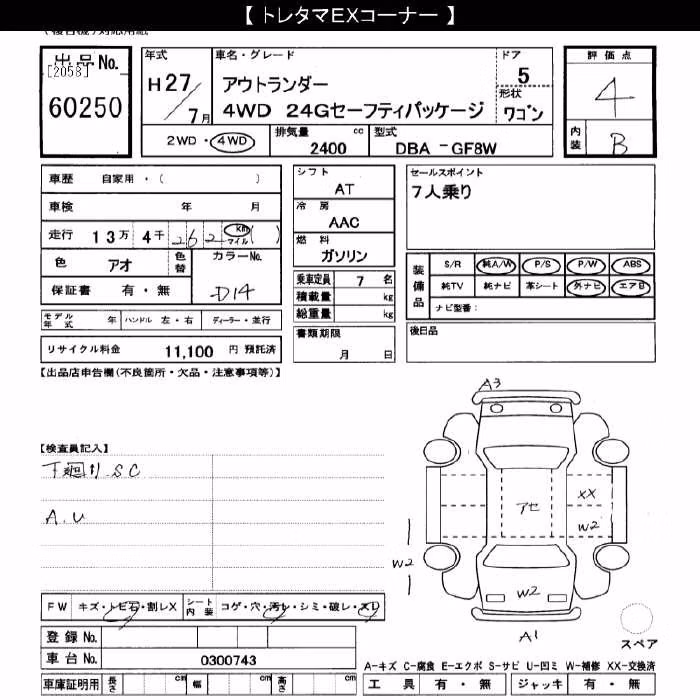 【 トレタマEXコーナー 】
出品No.
[2058]
60250
年式
H27/7月
車名・グレード
アウトランダー
4WD 24Gセーフティパッケージ
ドア
5
形状
ワゴン
評価点
4
内装 B
2WD・4WD
排気量 cc
2400
型式
DBA －GF8W
車歴 自家用・（ ）
車検 年 月
走行 13万 4千 262 km マイル ( )
色 アオ
色替
カラーNo.
D14
保証書 有・無
シフト
AT
冷房
AAC
燃料
ガソリン
乗車定員 7 名
積載量 kg
総重量 kg
書類期限
月 日
セールスポイント
7人乗り
装備品
S/R 純A/W P/S P/W ABS
純TV 純ナビ 革シート 外ナビ エアB
ナビ型番:
後日品
モデル年式 年 ハンドル 左・右 ディーラー・並行
リサイクル料金 11,100 円 預託済
【出品店申告欄(不良箇所・欠品・注意事項等)】
【検査員記入】
下廻り SC
A.U
A3
アセ
XX
W2
W2
W2
A1
スペア
FW キズ・トビ石・割レX
シート内装 コゲ・穴・汚レ・シミ・破レ・スレ
登録No.
車台No. 0300743
車庫証明用 長さ cm 幅 cm 高さ cm
A-キズ C-腐食 E-エクボ S-サビ U-凹ミ W-補修 XX-交換済
工具 有・無 ジャッキ 有・無